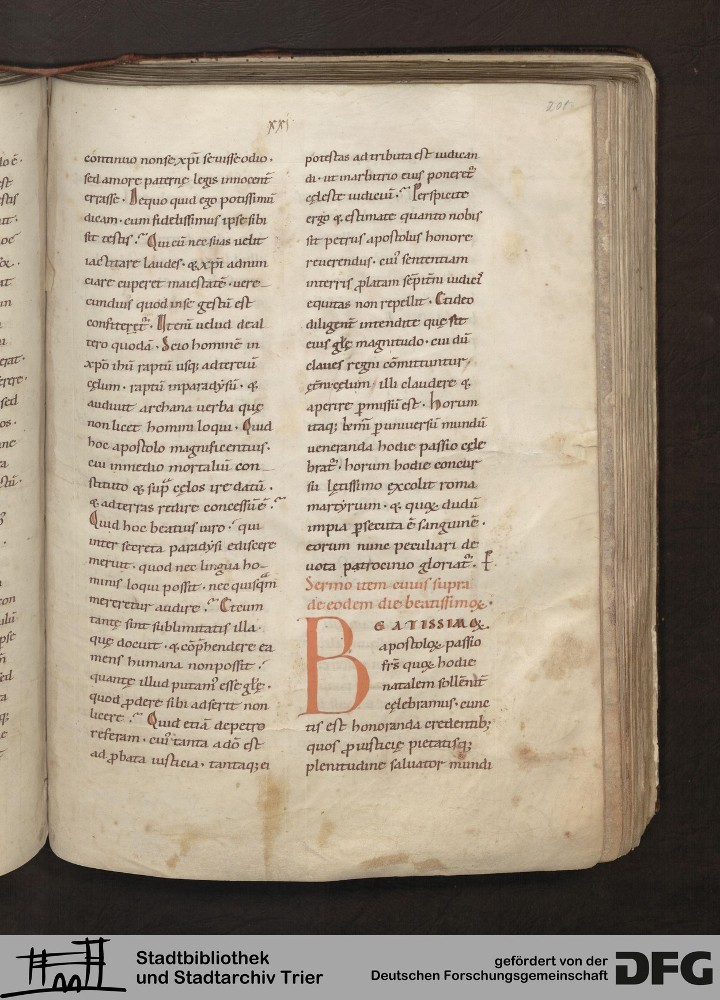 201
xxi
continuo non se xp̄i sevisse odio ·
sed amore paternę legis innocent̄
errasse · De quo quid ego potissimū
dicam · cum fidelissimus ipse sibi
sit testis · Qui cū nec suas velit
iactitare laudes · & xp̄i adnun
ciare cuperet maiestatē · vere
cundius quod in se gestū est
confiteret᷑ · Ut enī velud de al
tero quodā · Scio hominē in
xp̄o ihū raptū usq; ad terciū
cęlum · raptū in paradẏsū · &
audivit archana verba quę
non licet homini loqui · Quid
hoc apostolo magnificentius ·
cui in medio mortaliū con
stituto & sup̄ cęlos ire datū ·
& ad terras redire concessū ē ·
Quid hoc beatius viro · qui
inter secreta paradẏsi ediscere
meruit · quod nec lingua ho
minis loqui possit · nec quisquā
mereretur audire · Et cum
tantę sint sublimitatis illa ·
quę docuit · & cōp̄hendere ea
mens humana non possit ·
quantę illud putam᷒ esse głę ·
quod ꝓdere sibi adserit non
licere · Quid etiā de petro
referam · cui᷒ tanta a dō est
ad ꝓbata iusticia · tantaq; ei
potestas adtributa est iudican
di · ut in arbitrio eius poneret᷑
cęleste iudiciū · Perspicite
ergo & estimate quanto nobis
sit petrus apostolus honore
reverendus · cui᷒ sententiam
in terris ꝓlatam sēpit̄ni iudici᷒
equitas non repellit · Et ideo
diligent̄ intendite quę sit
eius głę magnitudo · cui dū
claves regni cōmittuntur ·
illi claudere &
aperire p̱missū est · Horum
itaq; p̱ universū mundū
veneranda hodie passio cele
brat᷑ · horum hodie concur
su lętissimo excolit roma
martẏrium · & quoꝝ dudū
impia p̱secuta ē sanguinē ·
eorum nunc peculiari de
vota patrocinio gloriat᷑ ·
Sermo item cuius supra
de eodem die beatissimoꝝ ·
BEATISSIMOꝝ ·
apostoloꝝ passio
fr̄s quoꝝ hodie
natalem sollēnit̄
cęlebramus · cunc
tis est honoranda credentib;
quos ꝓ iusticię pietatisq;
plenitudine salvator mundi
Stadtbibliothek
und Stadtarchiv Trier
gefördert von der
Deutschen Forschungsgemeinschaft
DFG